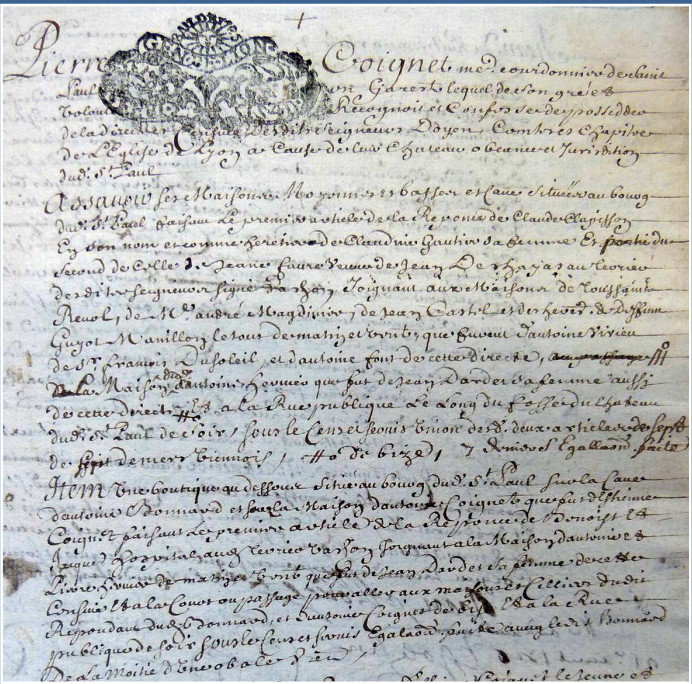 Pierre Coignet me cordonnier de Saint
Paul en Jarest lequel de son gré et
Volonté Recognoit et Confesse de posseder
de la directe Censive desdits seigneurs Doyen, Comtes et Chapitre
de l'Eglise de Lyon a Cause de leur Chateau obeance et Jurisdition
dud. St. Paul
Assavoir ses Maisons Moyennes et basses et Cave situées au bourg
dud. St. Paul faisant Le premier article de la Reponse de Claude Clapisson
En son nom et comme heretier de Claudine Gautier sa femme Et partie du
second de Celle de Jeanne faure Veuve de Jean au terrier
desdits seigneurs signé Joignant aux Maisons de
Revol, de Me. andré Magdinier, de Jean Castel et des heres. de deffunt
Guyot Manillon le tout de matin et vent, que furent d'antoine Vivien
de Sr. francois Dusoleil, et d'antoine font de cette directe,
de la Maison d'antoine que fut de Jean Dardet et sa femme aussi
de cette directe et a la Rue publique Le Long du fossé du chateau
dud. St. Paul de soir, sous le Cens et servis Annuel desd. deux articles de sept
de sept deniers Viennois, de bize, 7 deniers Egallaon. faite
Item Une boutique au dessous située au bourg dud. St. Paul sur la Cave
d'antoine Bonnard et sous la Maison d'antoine Coignet que fut d'Estienne
Coignet faisant Le premier article de la Response de Benoist et
Jacques hospital audit terrier Joignant a la Maison d'antoine et
de matin et vent que fut de Jean Dardet et sa femme de cette
Censive et a la Court ou passage pour aller aux maisons et Cellier dudit
Repondant dud. Bonnard, et d'antoine Coignet de bize et a la Rue
publique de soir sous le Cens et servis Egalaon. faite avec led. Bonnard
De la Moitié d'Une obale